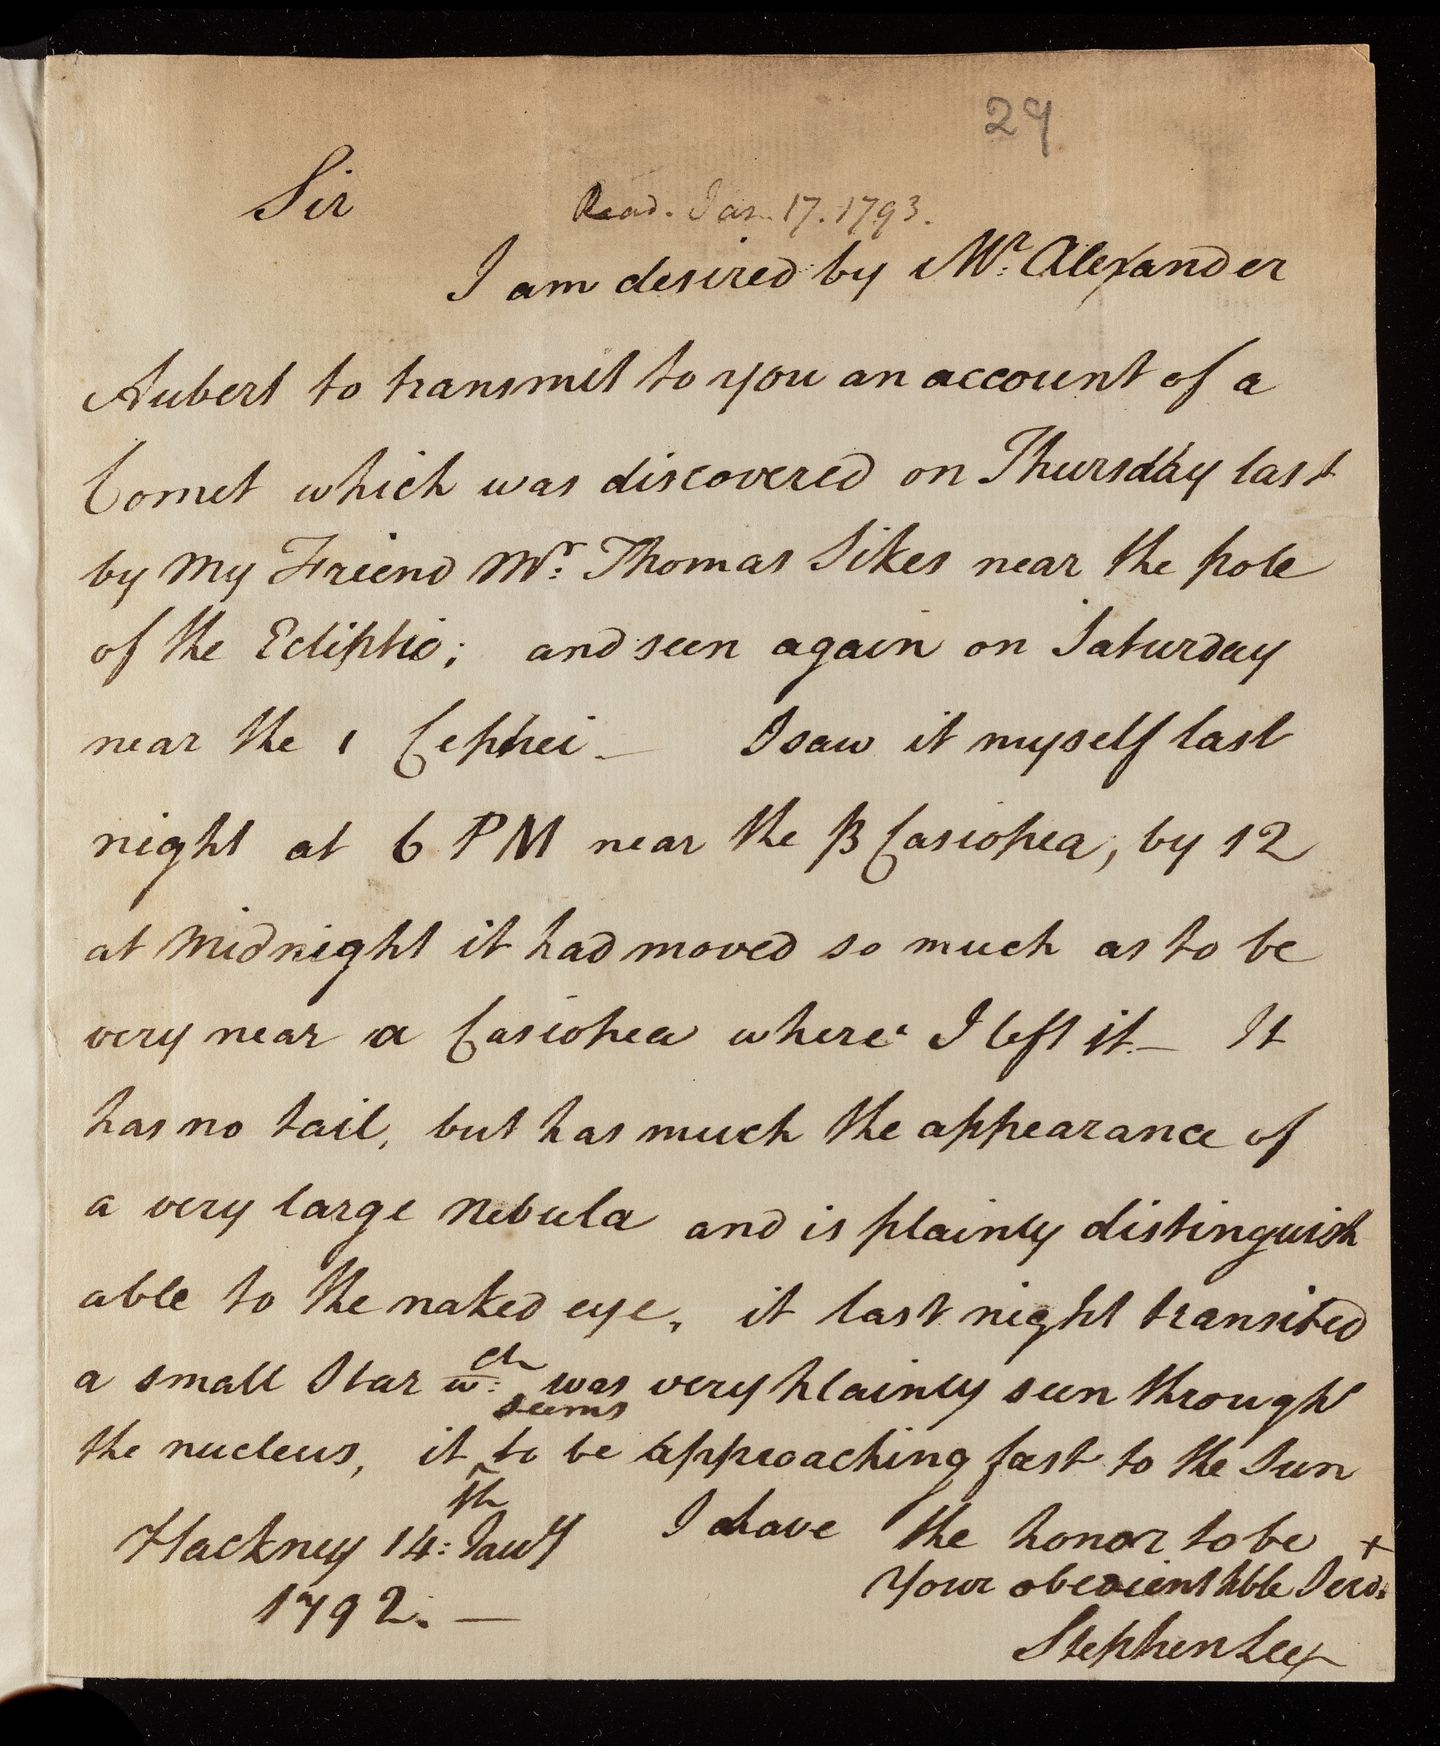 29
Sir
Read. Jan. 17. 1793.
I am desired by Mr: Alexander
Aubert to transmit to you an account of a
Comet which was discovered on Thursday last
by My Friend Mr: Thomas Sikes near the pole
of the Ecliptic; and seen again on Saturday
near the ι Cephei — I saw it myself last
night at 6 PM near the β Casiopea, by 12
at Midnight it had moved so much as to be
very near α Casiopea where I left it — It
has no tail, but has much the appearance of
a very large Nebula and is plainly distinguish
able to the naked eye, it last night transited
a small Star wch: was very plainly seen through
the nucleus, it seems to be approaching fast to the Sun
Hackney 14th: Jany I have the honor to be +
1792. — Your obedient Hble Serv:
Stephen Lee